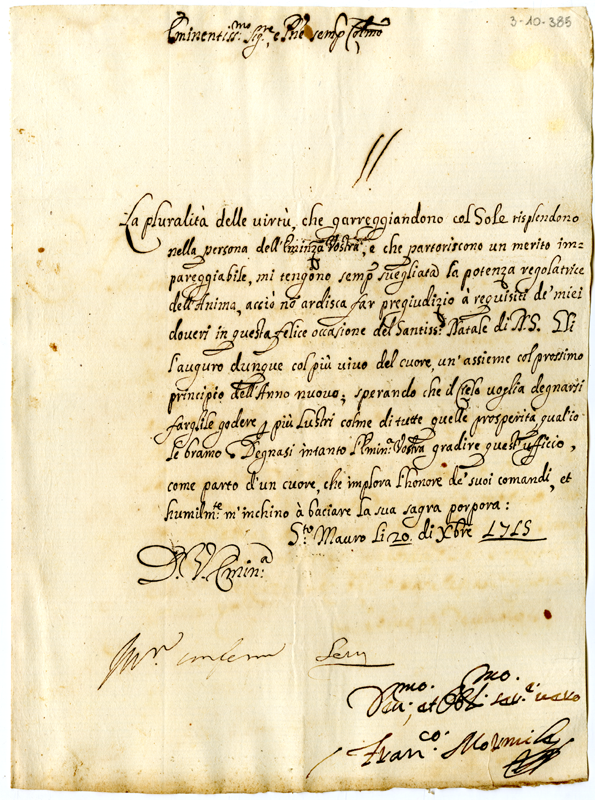 3-10-385
Eminentiss.mo Sig.re e Pne semp Colmo
La pluralità delle virtù, che garreggiandono col Sole risplendono
nella persona dell'Eminza Vostra, e che partoriscono un merito im=
pareggiabile, mi tengono semp suegliata la potenza regolatrice
dell'Anima, acciò nō ardisca far pregiudizio à requisiti de' miei
doveri in questa felice occasione del Santiss.o Natale di N.S. Vi
l'auguro dunque col più vivo del cuore, un'assieme col prossimo
principio dell'Anno nuovo; sperando che il Cielo voglia degnarsi
fargliele godere p più lustri colme di tutte quelle prosperità, qual io
le bramo Degnasi intanto l'Emin.a Vostra gradire quest'ufficio,
come parto d'un cuore, che implora l'honore de' suoi comandi, et
humilm.te m'inchino à baciare la sua sagra porpora:
S.to Mauro li 20 di Xbre 1715
D. V. Emin.a
Dev.mo et Obl.mo ser.e vero
Fran.co Mormile